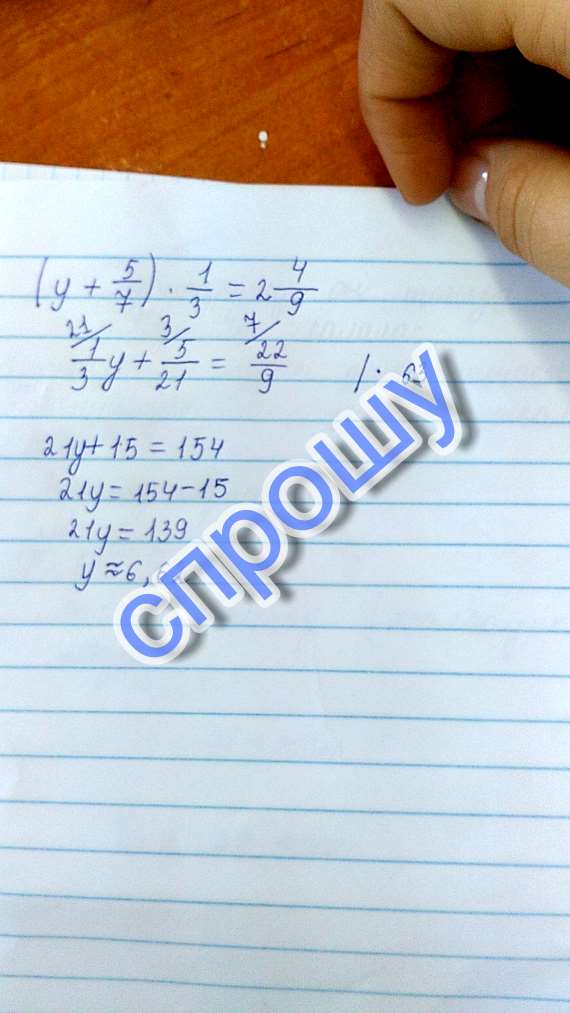 (y + 5/7) · 1/3 = 2 4/9
21/ 3/ 7/
1/3 y + 5/21 = 22/9 /· 63
21y + 15 = 154
21y = 154 - 15
21y = 139
y ≈ 6,
спрошу